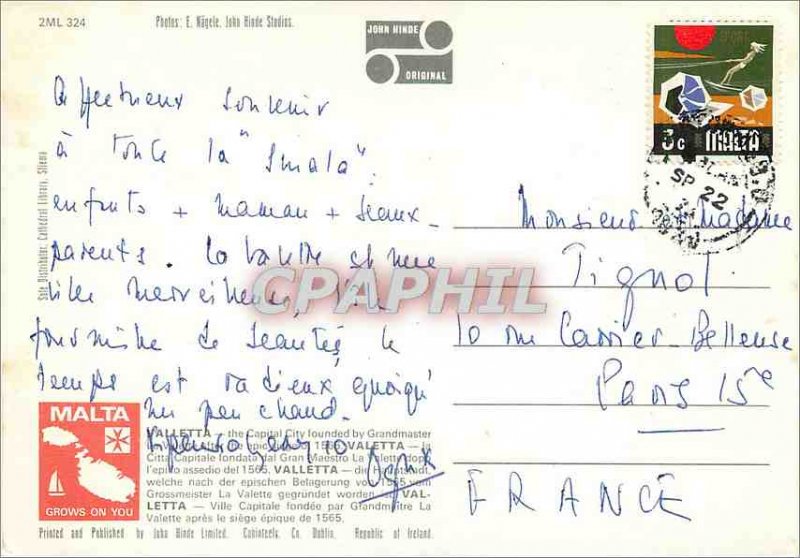 2ML 324
Photos: E. Nägele, John Hinde Studios.
JOHN HINDE
ORIGINAL
3c MALTA
SP 22
Affectueux souvenir
à toute la "smala".
enfants + maman + beaux-
parents. La Valette est une
ville merveilleuse,
fourmille de beautés, le
temps est radieux, quoiqu'
un peu chaud.
Monsieur et Madame
Pignol
10 rue Carrier-Belleuse
Paris 15e
FRANCE
CPAPHIL
Sole Distributor: Cathedral Library, Sliema
MALTA
GROWS ON YOU
VALLETTA — the Capital City founded by Grandmaster
1565. VALETTA — la
Città Capitale fondata dal Gran Maestro La Valette dopo
l'epico assedio del 1565. VALLETTA — die Hauptstadt,
welche nach der epischen Belagerung von 1565 vom
Grossmeister La Valette gegründet worden VAL-
LETTA — Ville Capitale fondée par Grandmaître La
Valette après le siège épique de 1565.
Printed and Published by John Hinde Limited, Cabinteely, Co. Dublin, Republic of Ireland.